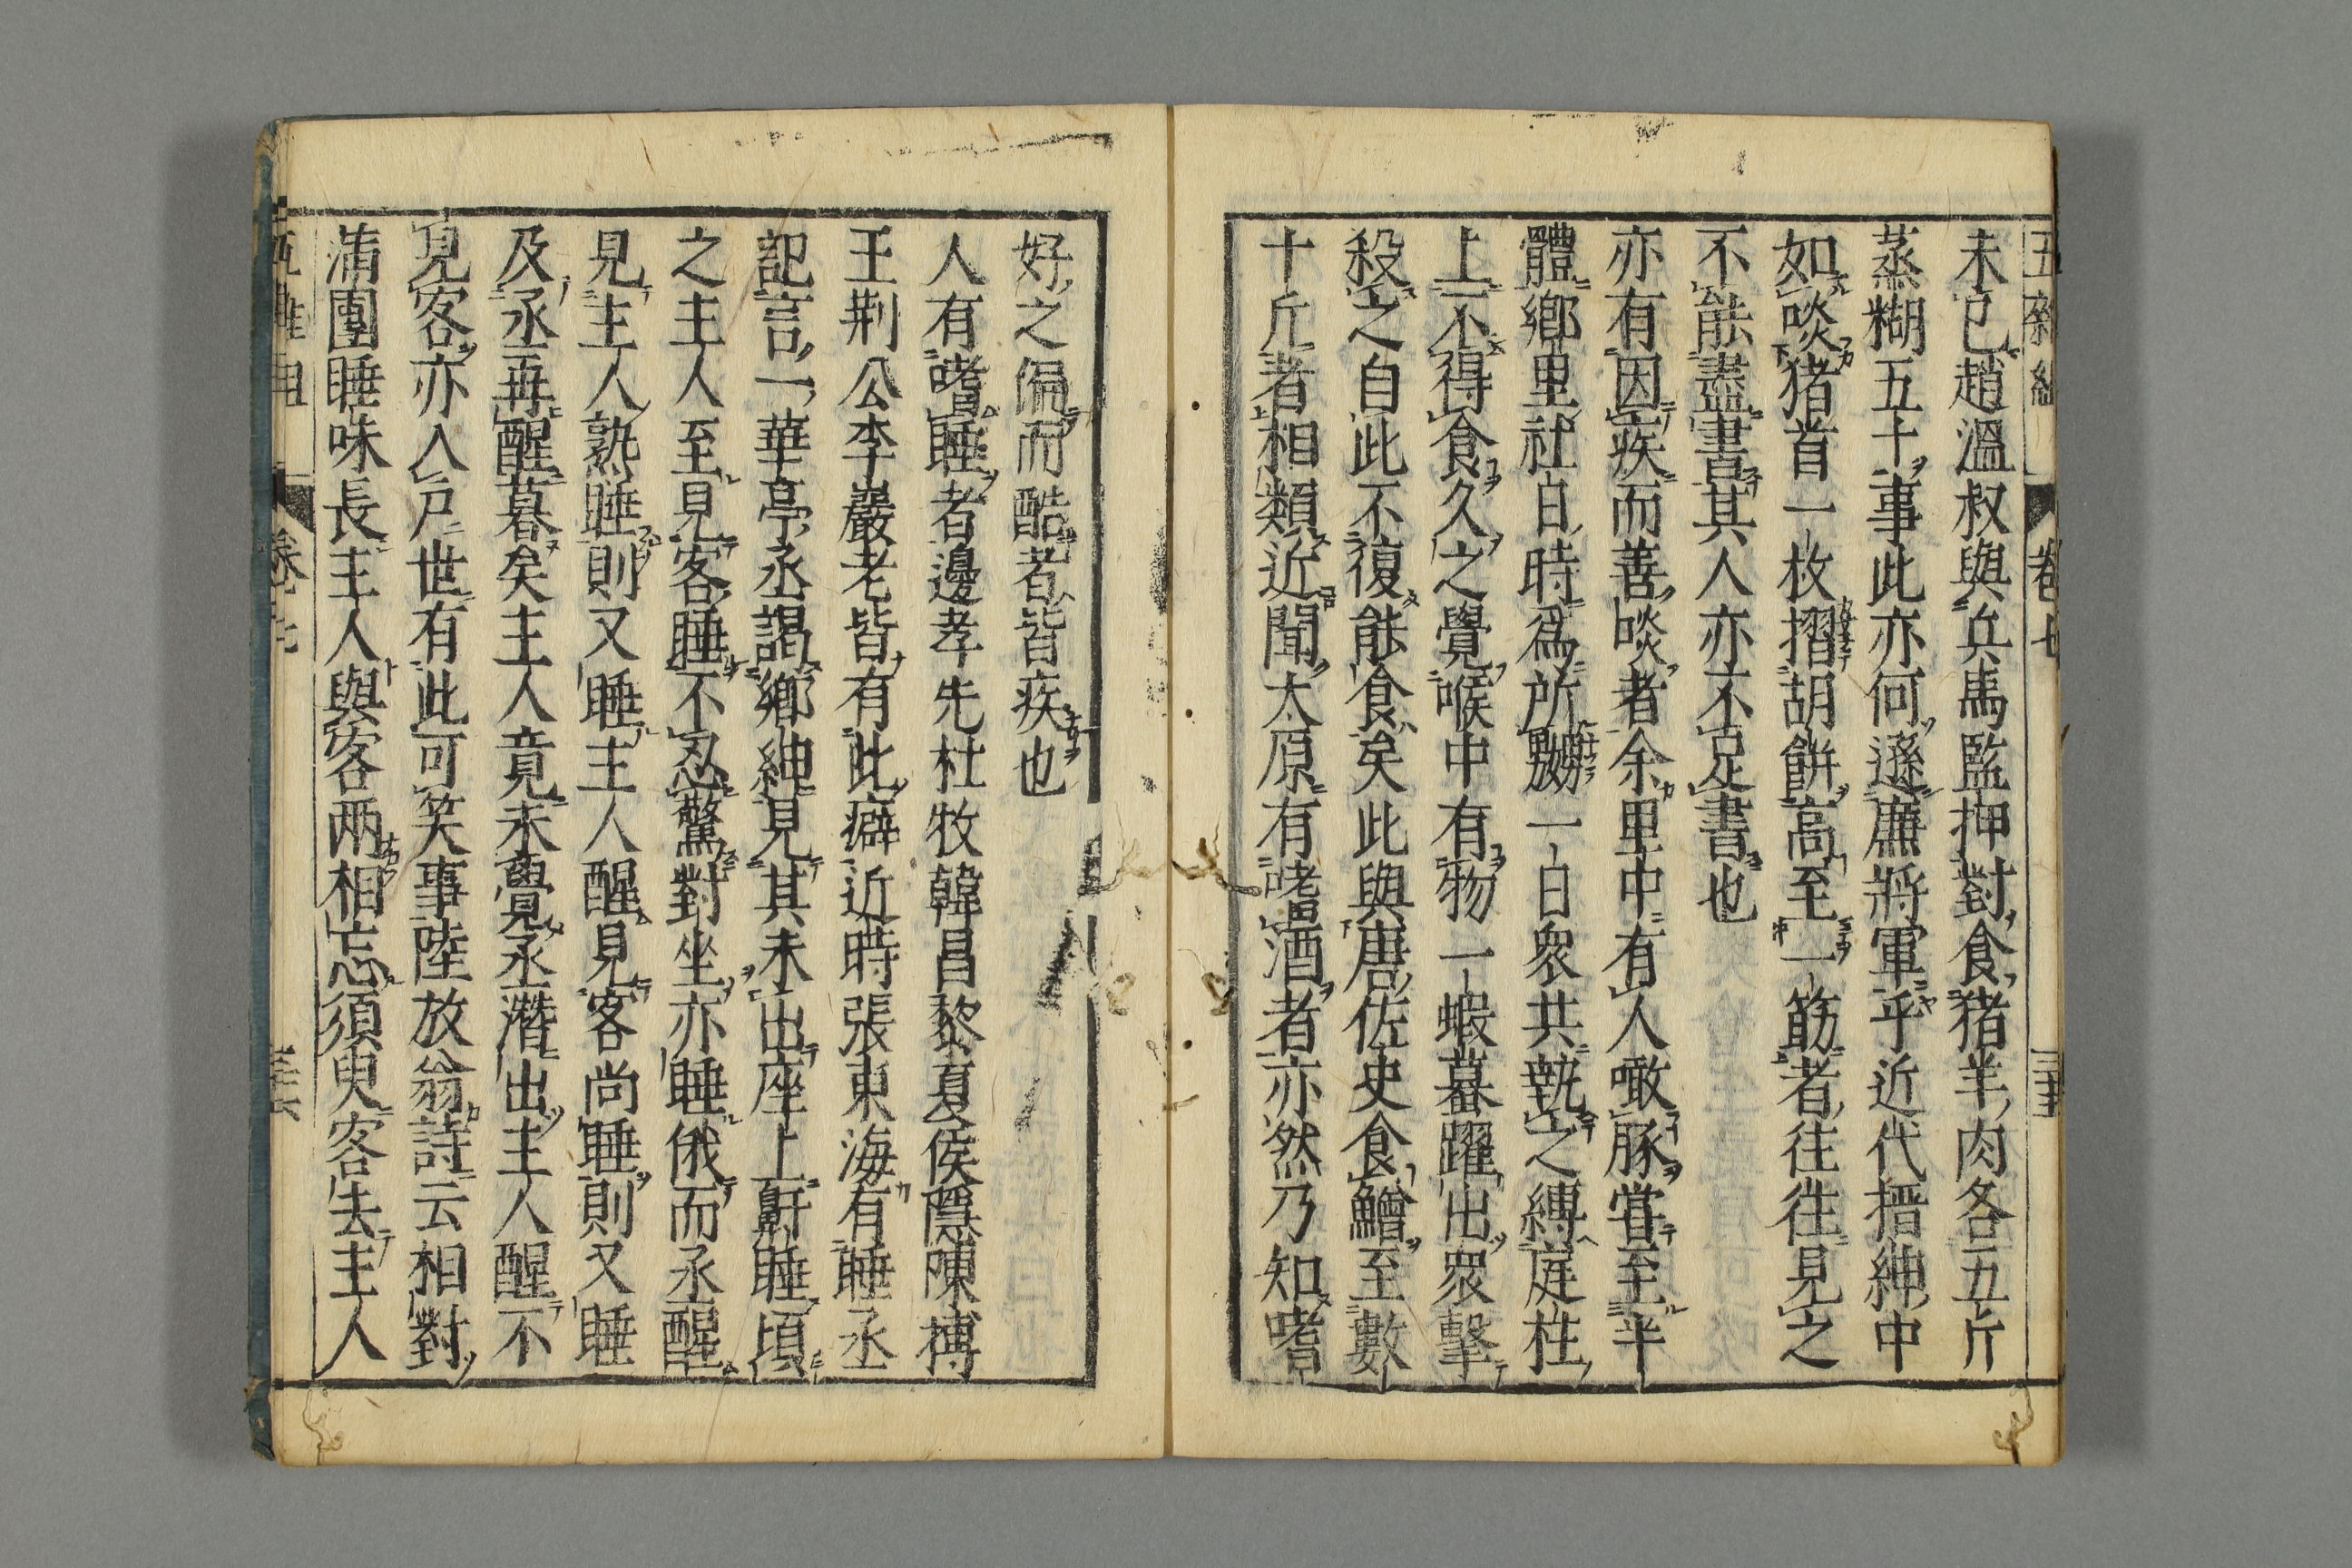 五雜組 卷七
未已趙溫叔與兵馬監押對食猪羊肉各五斤
蒸糊五十事此亦何遜廉將軍乎近代搢紳中
如啖猪首一枚摺胡餅高至一筯者往往見之
不能盡書其人亦不足書也
亦有因疾而善啖者余里中有人噉豚嘗至半
體鄉里社日時爲所嬲一日衆共執之縛庭柱
上不得食久之覺喉中有物一蝦蟇躍出衆擊
殺之自此不復能食矣此與唐佐史食鱠至數
十斤者相類近聞太原有嗜酒者亦然乃知嗜
好之偏而酷者皆疾也
人有嗜睡者邊孝先杜牧韓昌黎夏侯隱陳摶
王荆公李巖老皆有此癖近時張東海有睡丞
記言一華亭丞謁鄉紳見其未出座上鼾睡頃
之主人至見客睡不忍驚對坐亦睡俄而丞醒
見主人熟睡則又睡主人醒見客尚睡則又睡
及丞再醒暮矣主人竟未覺丞潛出主人醒不
見客亦入戶世有此可笑事陸放翁詩云相對
蒲團睡味長主人與客兩相忘須臾客去主人
卷七